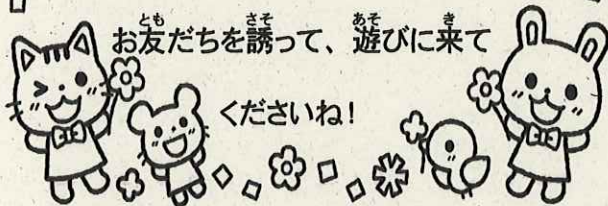 お友だちを誘って、遊びに来て
くださいね!